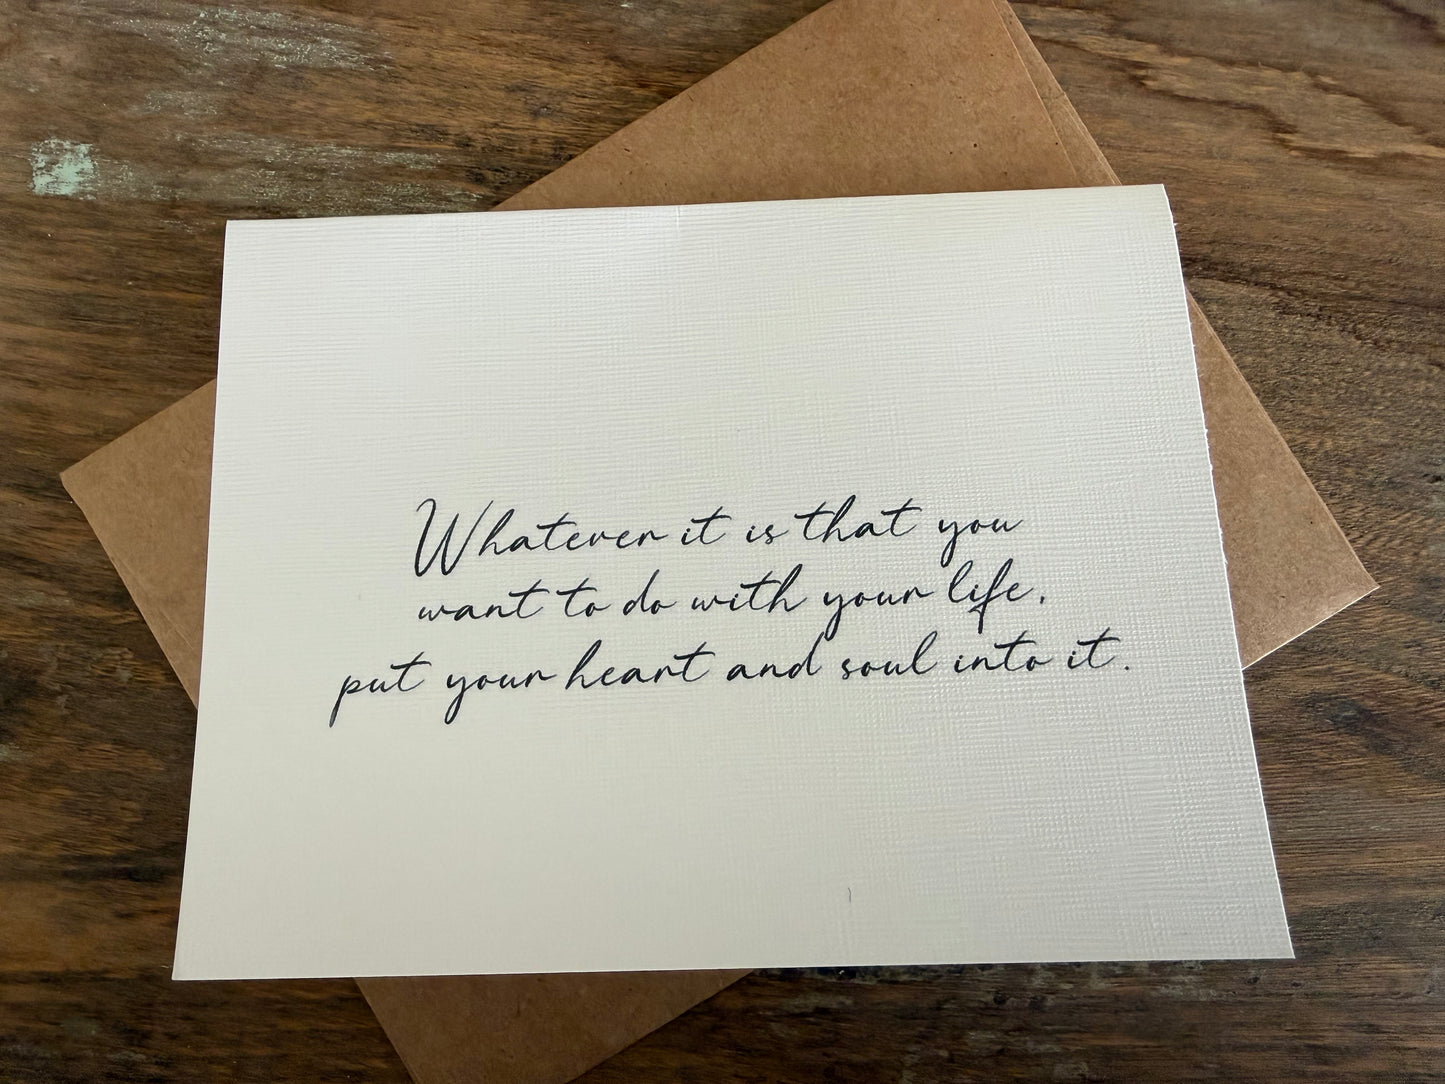 Whatever it is that you
want to do with your life,
put your heart and soul into it.